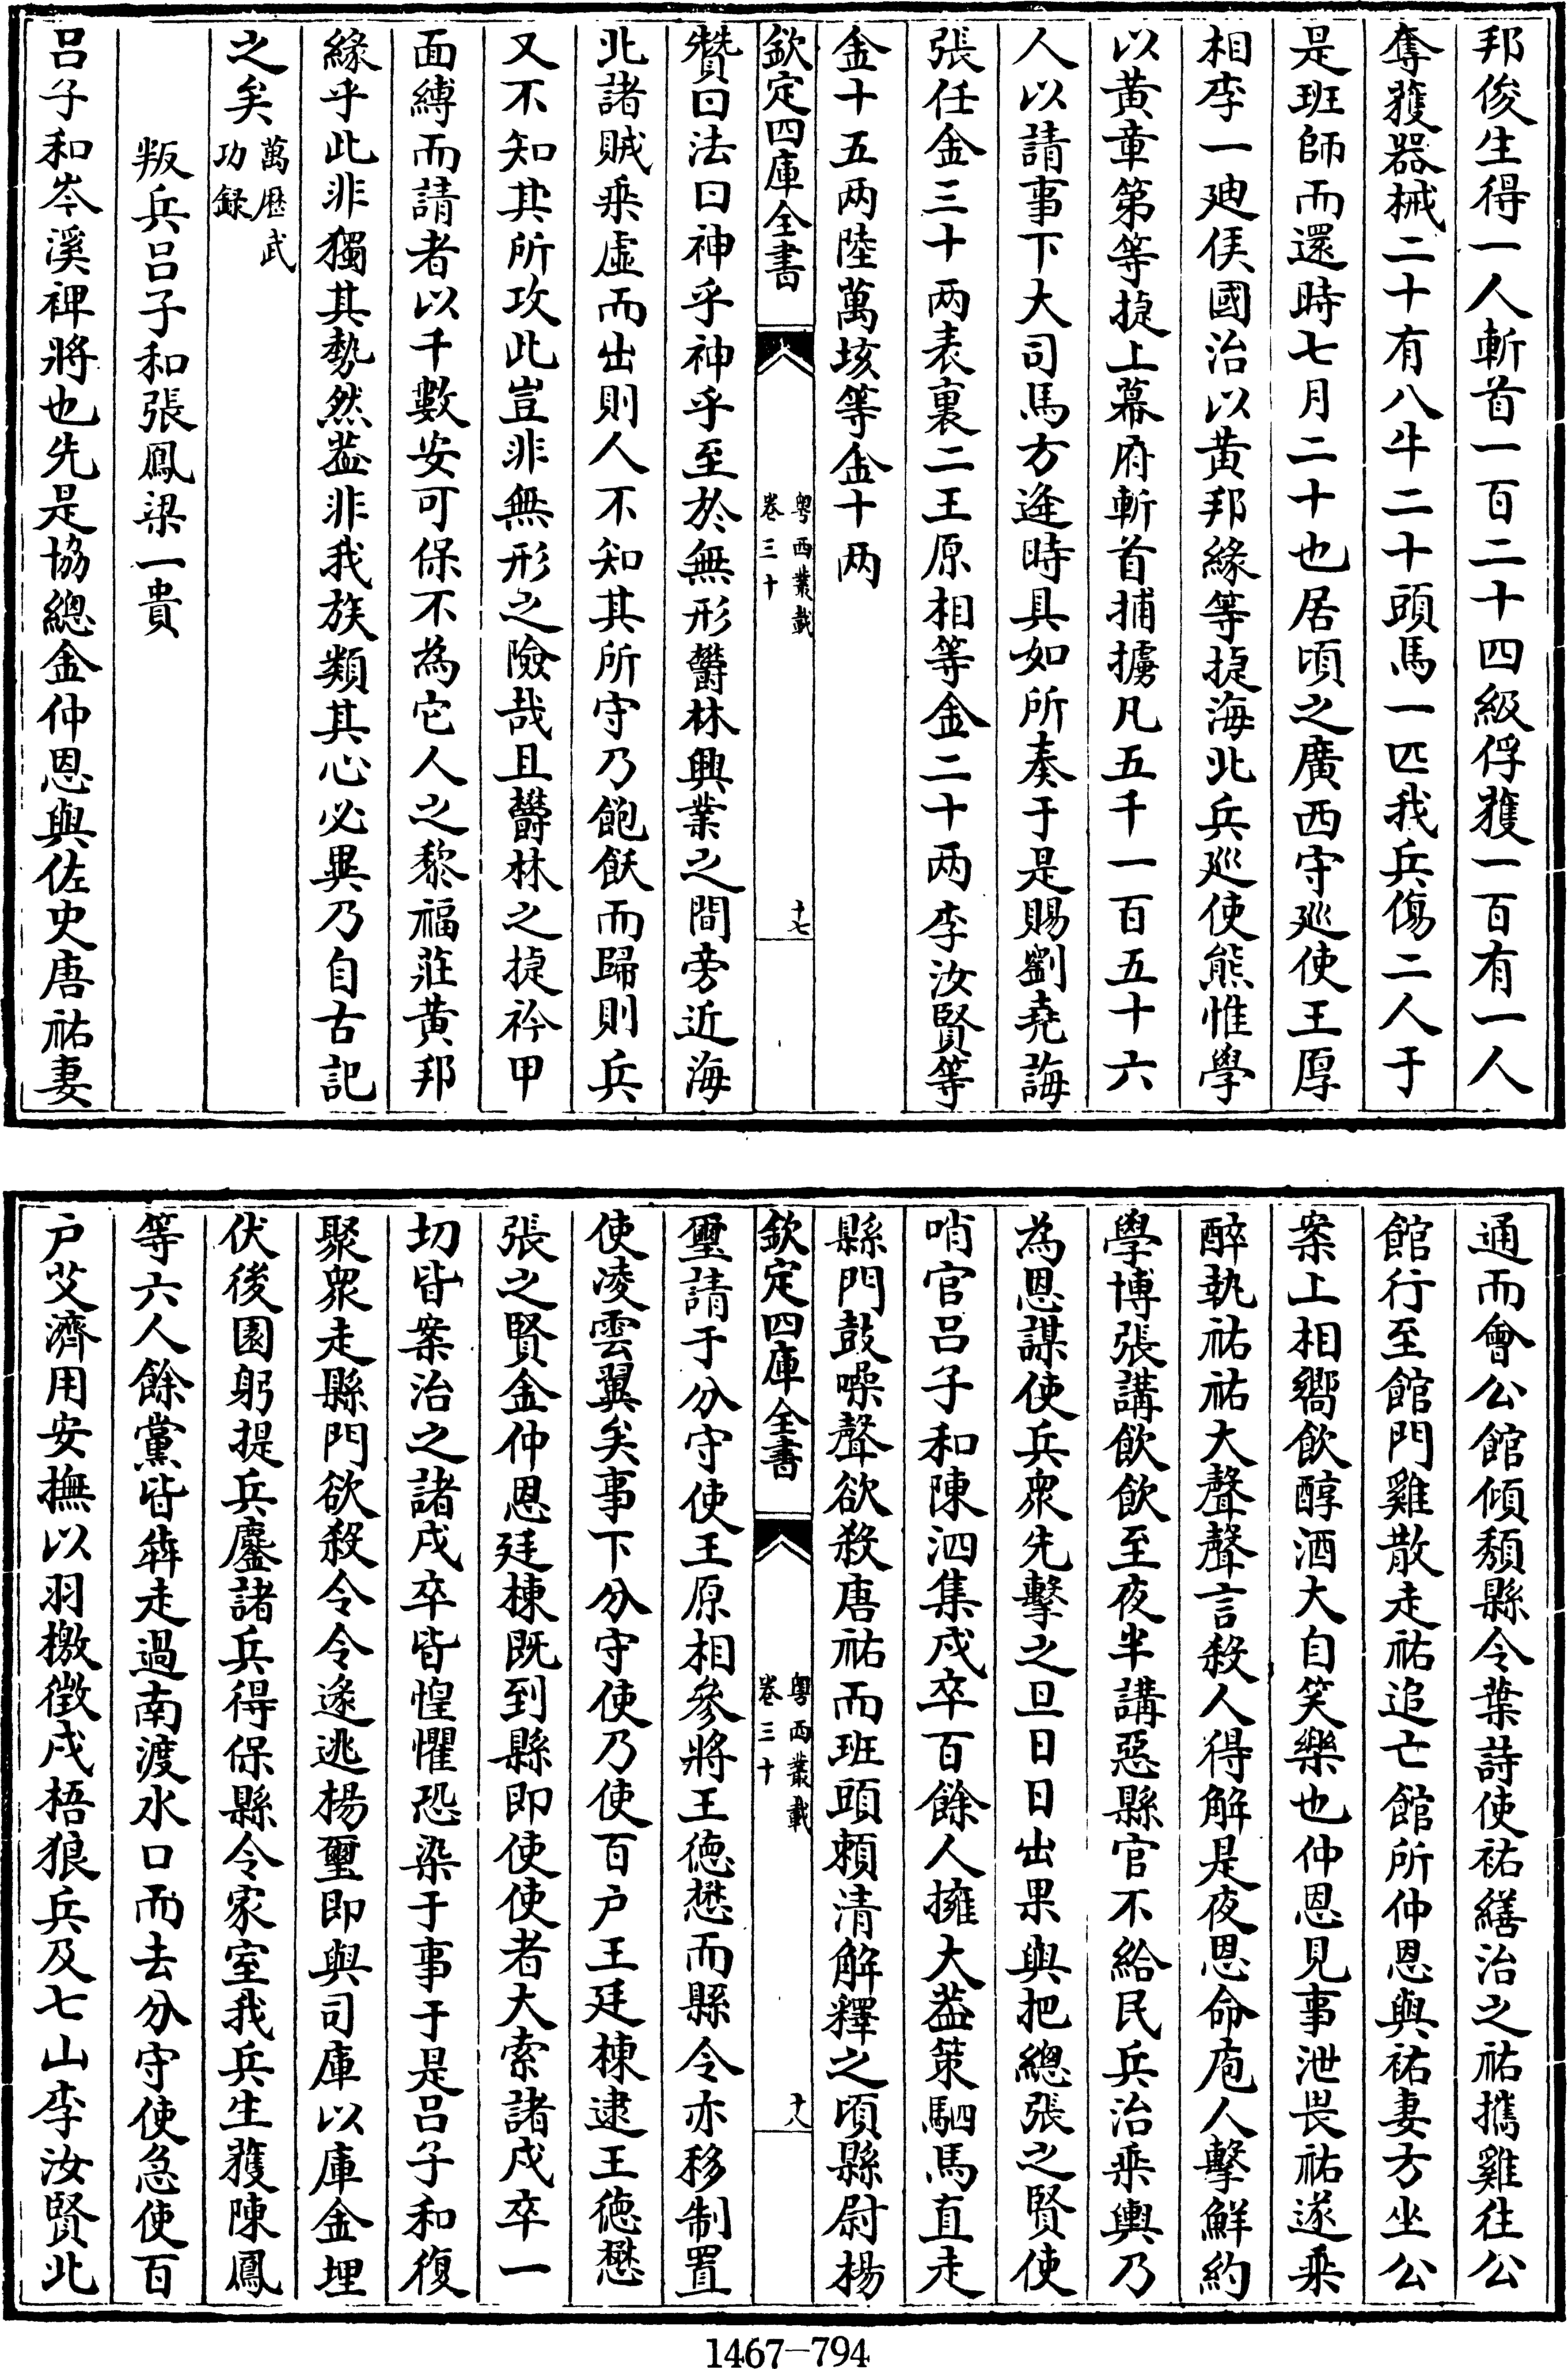 邦俊生得一人斬首一百二十四級俘獲一百有一人
奪獲器械二十有八牛二十頭馬一匹我兵傷二人于
是班師而還時七月二十也居頃之廣西守廵使王厚
相李一廸侯國治以黃邦緣等捷海北兵廵使熊惟學
以黃章第等捷上幕府斬首捕擄凡五千一百五十六
人以請事下大司馬方逢時具如所奏于是賜劉堯誨
張任金三十两表裏二王原相等金二十两李汝賢等
金十五两陸萬垓等金十两
欽定四庫全書
粤西叢載
卷三十
十七
贊曰法曰神乎神乎至於無形鬱林興業之間旁近海
北諸賊乘虛而出則人不知其所守乃飽飫而歸則兵
又不知其所攻此豈非無形之險哉且鬱林之捷衿甲
面縛而請者以千數安可保不為它人之黎福莊黃邦
緣乎此非獨其勢然葢非我族類其心必異乃自古記
之矣萬歴武
功録
叛兵吕子和張鳳梁一貴
吕子和岑溪裨將也先是協總金仲恩與佐史唐祐妻
通而會公館傾頽縣令葉詩使祐繕治之祐攜雞往公
館行至館門雞散走祐追亡館所仲恩與祐妻方坐公
案上相嚮飲醇酒大自笑樂也仲恩見事泄畏祐遂乘
醉執祐祐大聲聲言殺人得解是夜恩命庖人擊鮮約
學博張講飲飲至夜半講惡縣官不給民兵治乘輿乃
為恩謀使兵衆先擊之旦日日出果與把總張之賢使
哨官吕子和陳泗集戍卒百餘人擁大葢策駟馬直走
縣門鼓噪聲欲殺唐祐而班頭賴清解釋之頃縣尉楊
欽定四庫全書
粤西叢載
卷三十
十八
璽請于分守使王原相參將王德懋而縣令亦移制置
使凌雲翼矣事下分守使乃使百户王廷棟逮王德懋
張之賢金仲恩廷棟既到縣即使使者大索諸戍卒一
切皆案治之諸戍卒皆惶懼恐染于事于是吕子和復
聚衆走縣門欲殺令令遂逃楊璽即與司庫以庫金埋
伏後園躬提兵鏖諸兵得保縣令家室我兵生獲陳鳳
等六人餘黨皆犇走過南渡水口而去分守使急使百
户艾濟用安撫以羽檄徴戍梧狼兵及七山李汝賢北
1467-794